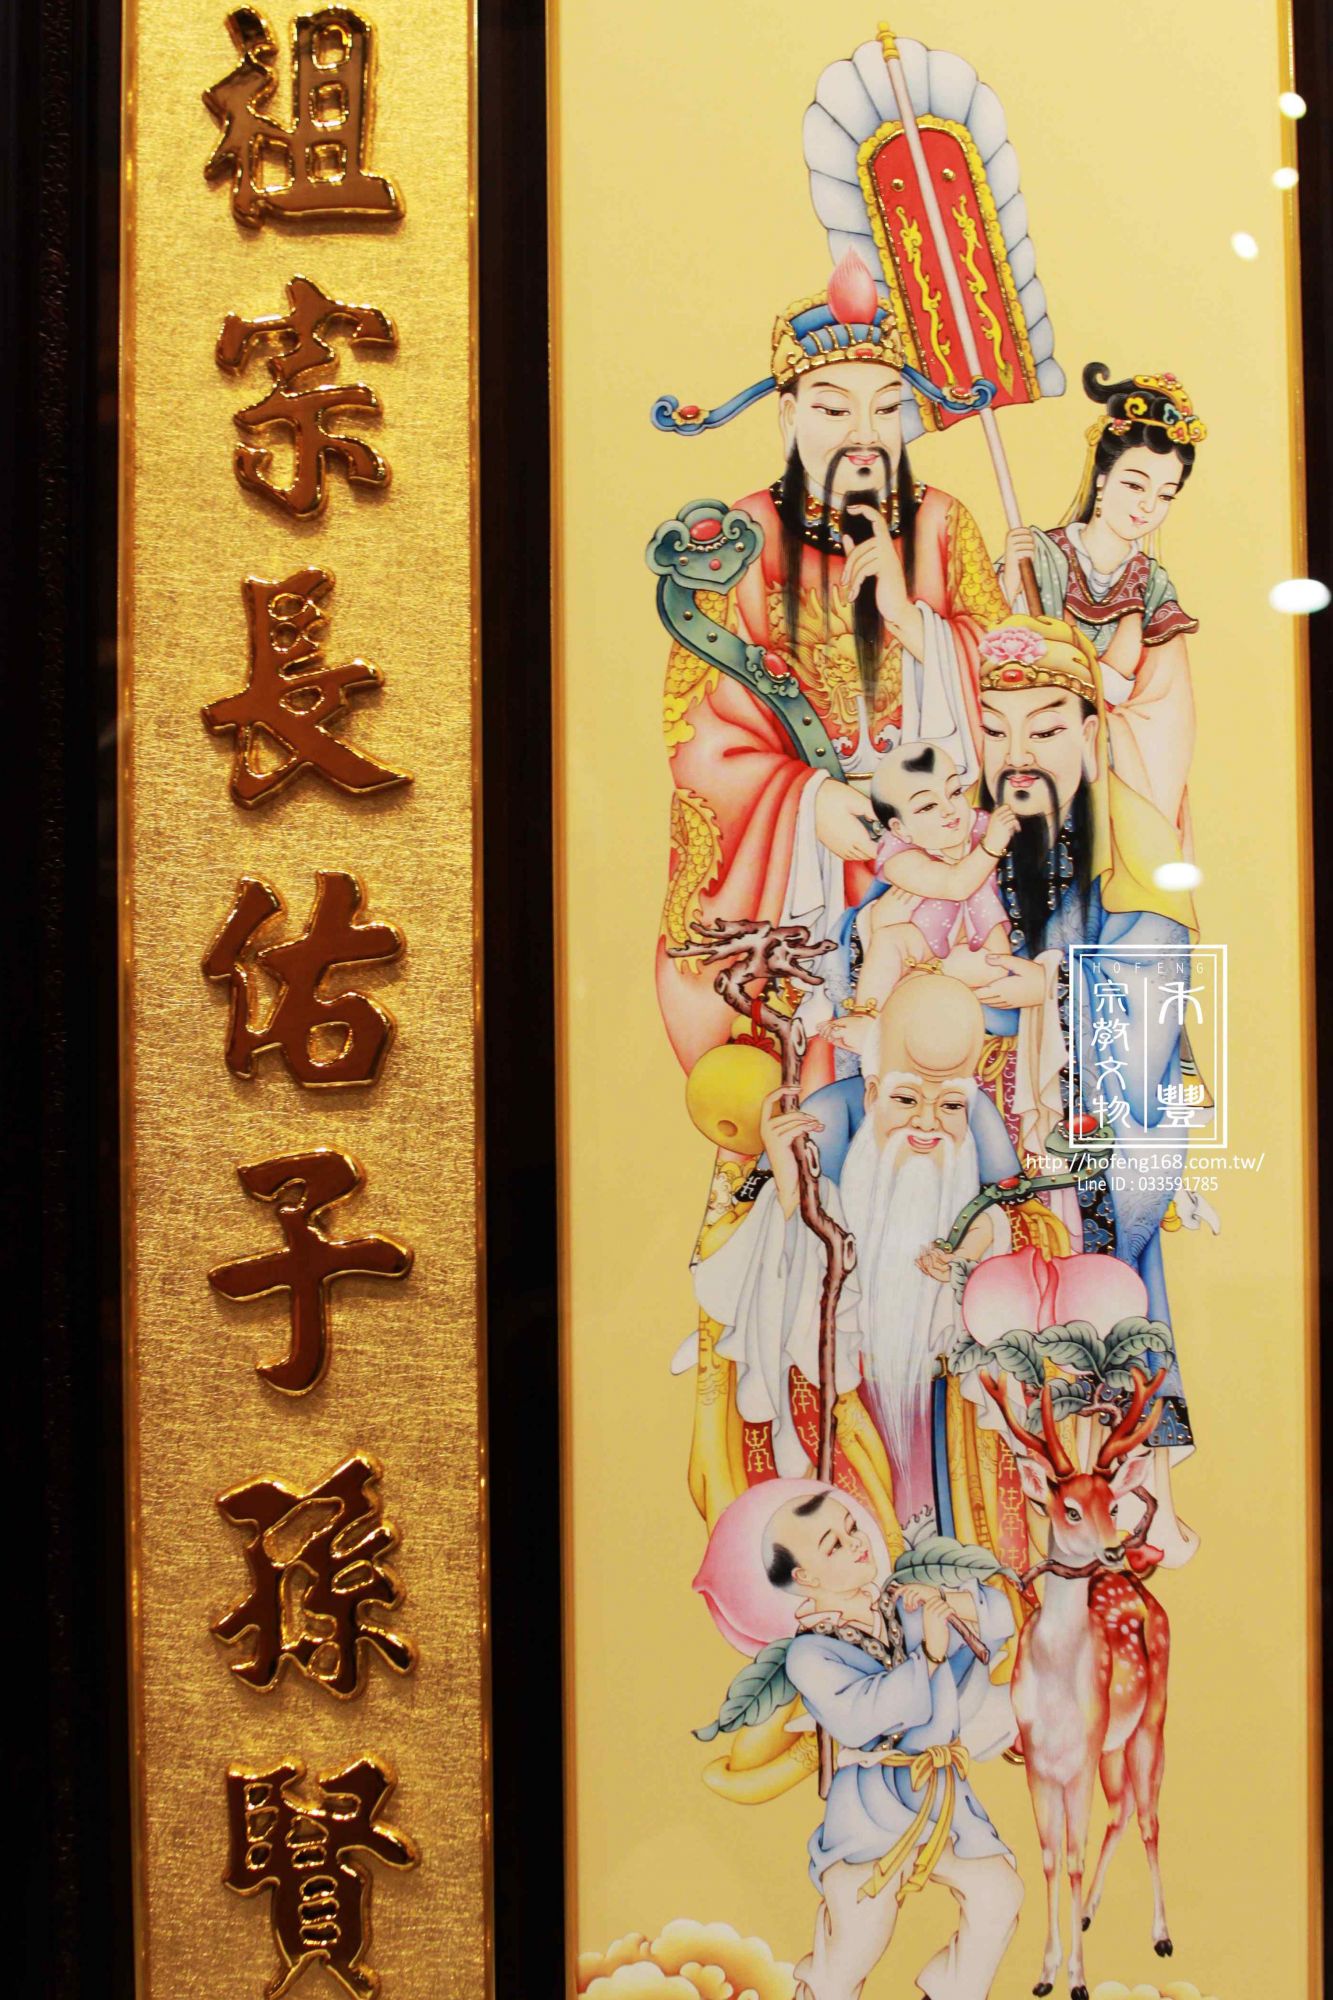 祖宗長佑子孫賢
HOFENG
禾豐
宗教文物
http://hofeng168.com.tw/
Line ID : 033591785